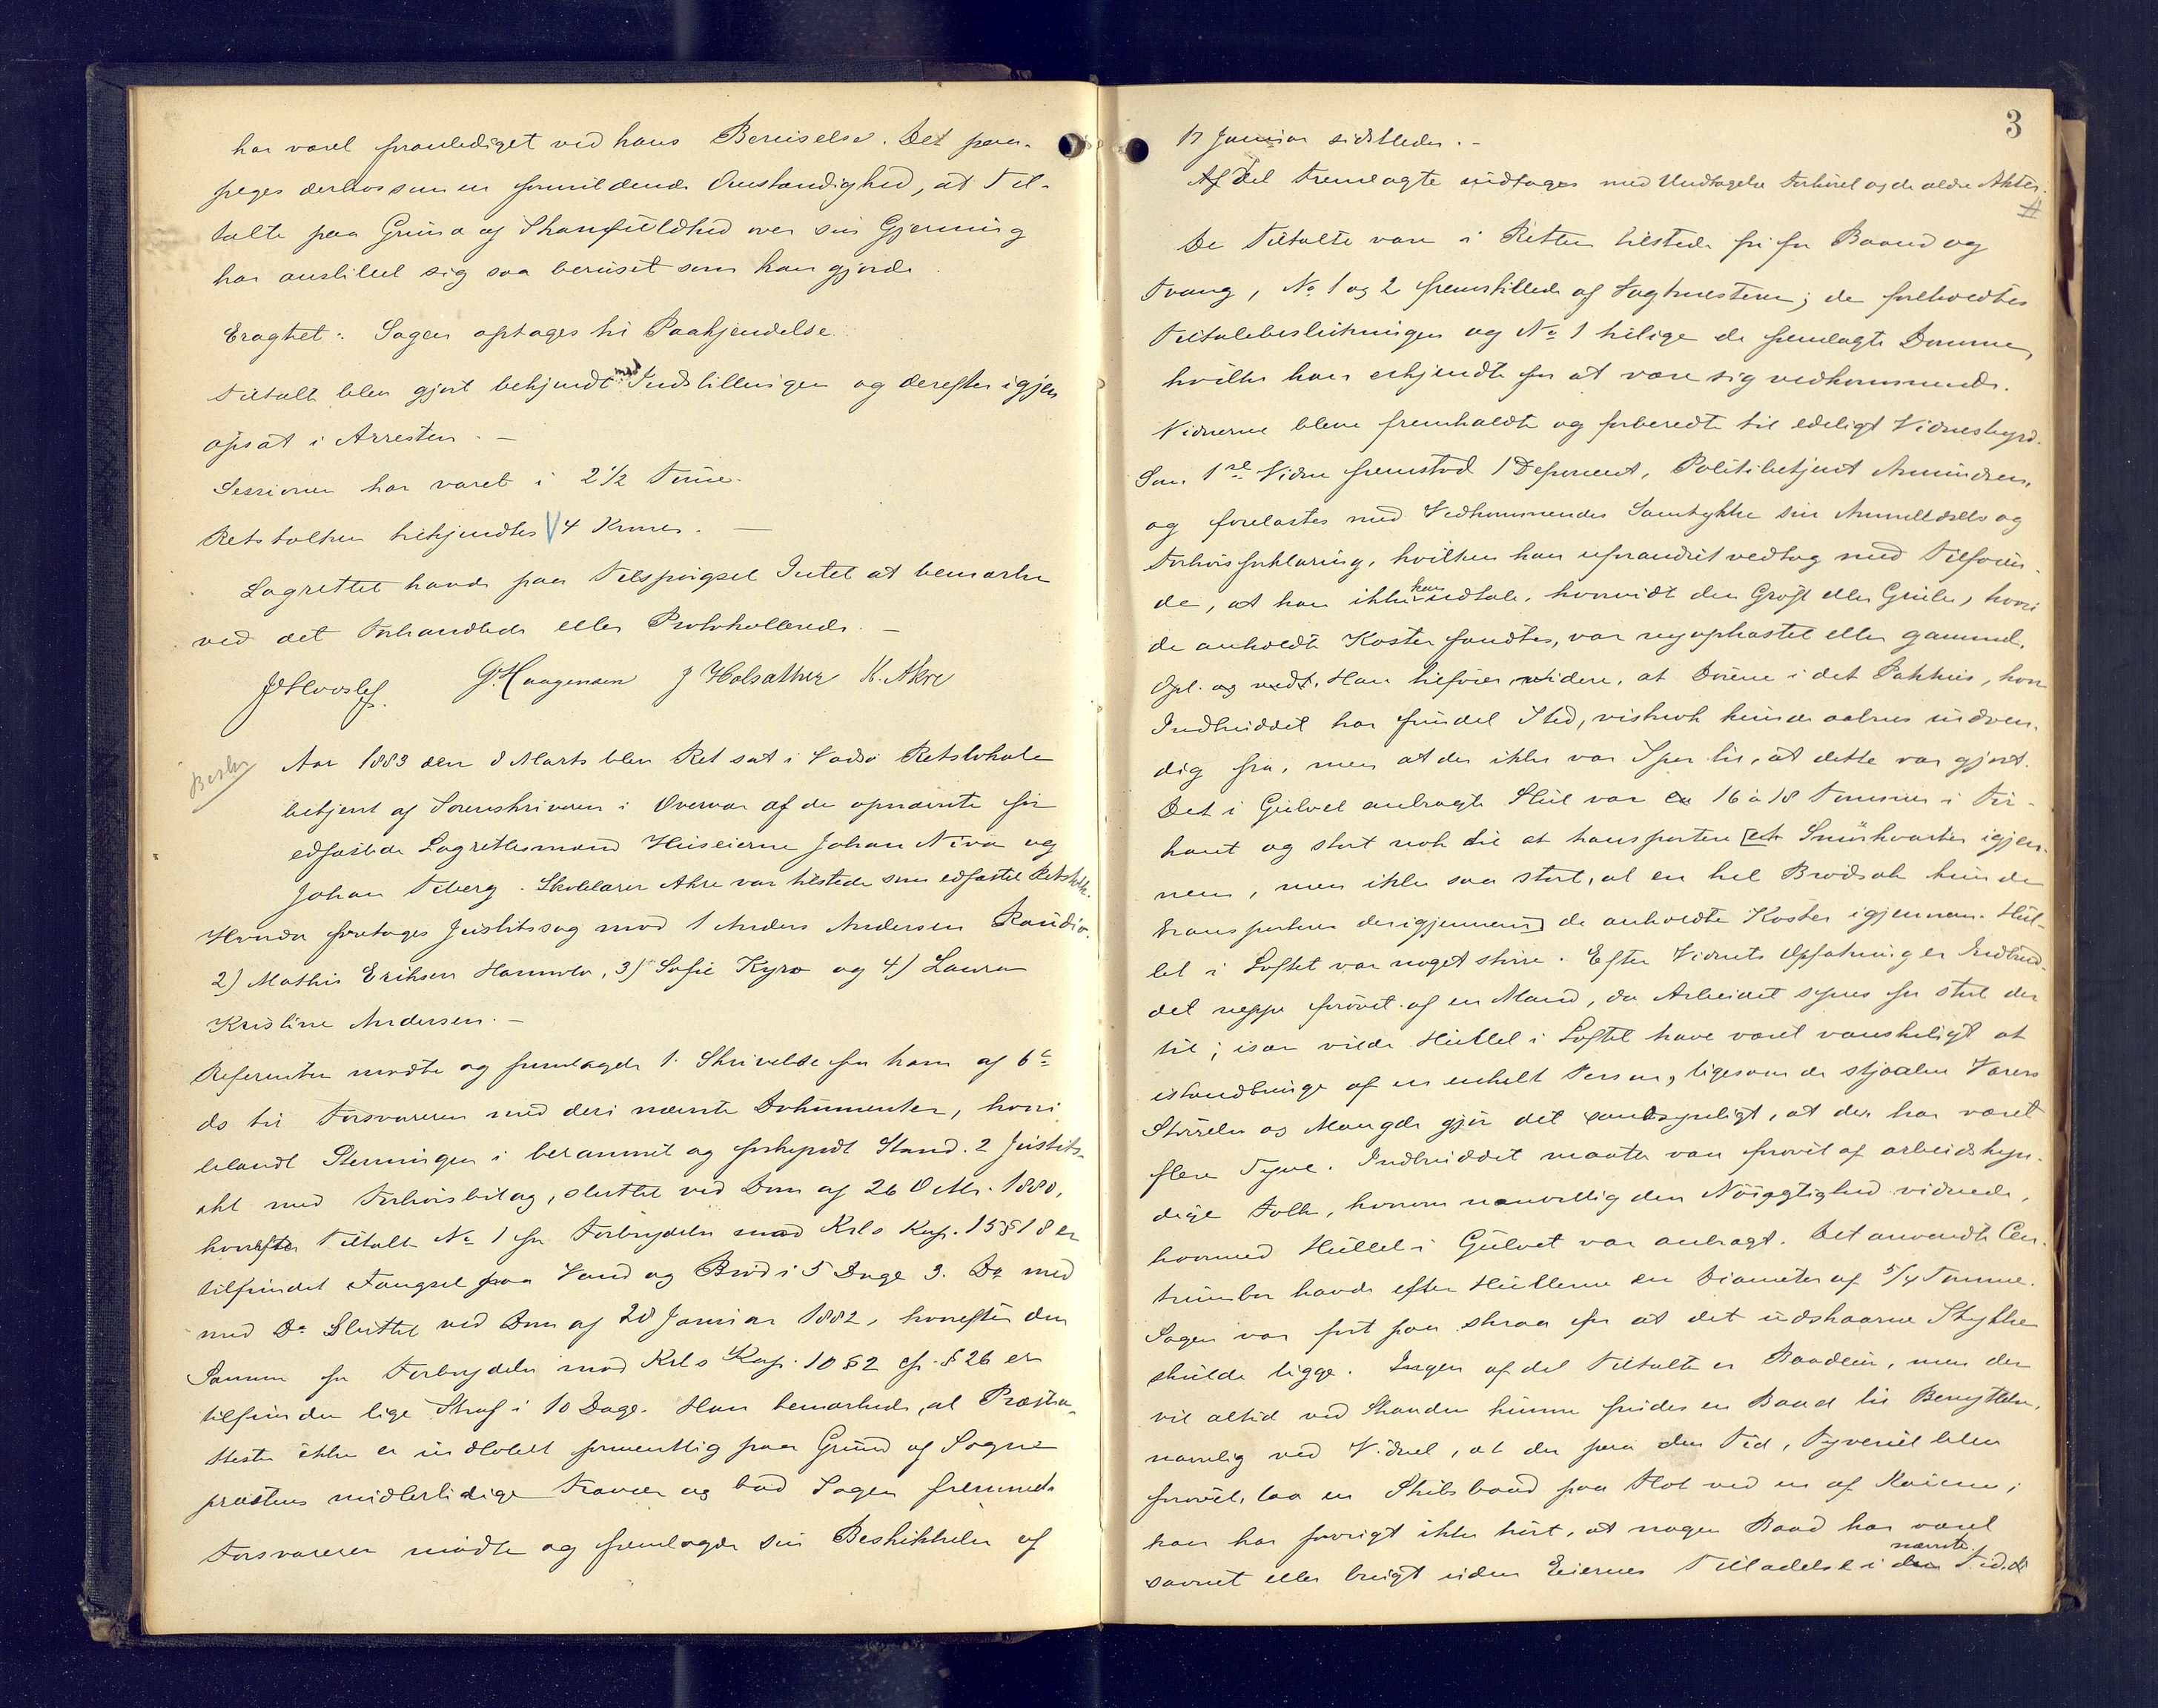 har været foranlediget ved hans Beruselse. Det paa-
peges derhos som en formildende Omstændighed, at Til-
talte paa Grund af Skamfuldhed over sin Gjerning
har anstillet sig saa beruset som han gjorde.
Eragtet: Sagen optages til Paakjendelse.
Tiltalte blev gjort bekjendt med Indstillingen og derefter igjen
opsat i Arresten. —
Sessionen har varet i 2 1/2 Time.
Retstolken tilkjendtes 4 Kroner. —
Lagrettet havde paa Tilspørgsel Intet at bemærke
ved det Forhandlede eller Protokollerede. —
G. Haagensen J Holsæther K. Akre
Aar 1883 den 8 Marts blev Ret sat i Vadsø Retslokale
betjent af Sorenskriveren i Overvær af de opnævnte for
edfæstede Lagrettesmænd Huseierne Johan Niva og
Johan Fiberg. Skolelærer Akre var tilstede som edfæstet Retstolk.
Hvorda foretages Justitssag mod 1 Anders Andersen Raudio.
2) Mathis Eriksen Hannola, 3) Sofie Kyrø og 4) Laura
Kristine Andersen. —
Referenten mødte og fremlagde 1. Skrivelse fra ham af 6te
ds til Forsvareren med deri nævnte Dokumenter, hvori
blandt Stevningen i berammet og forkyndt Stand. 2 Justits-
akt med Forhørsbilag, sluttet ved Dom af 26 Oktr. 1880,
hvorefter Tiltalte No 1 for Forbrydelse mod Krls Kap. 15 § 18 er
tilfundet Fængsel paa Vand og Brød i 5 Dage 3. Do med
med Do Sluttet ved Dom af 28 Januar 1882, hvorefter den
Samme for Forbrydelse mod Krls Kap. 10 § 2 cf. § 26 er
tilfunden lige Straf i 10 Dage. Han bemærkede, at Præstea-
ttester ikke er indløbet formentlig paa Grund af Sogne
præstens midlertidige Fravær og bad Sagen fremmet.
Forsvareren mødte og fremlagde sin Beskikkelse af
3
17 Januar sidstleden. —
Af det Fremlagte indtages med Undtagelse Forhøret og de ældre Akter.
De Tiltalte vare i Retten tilstede fri for Baand og
Tvang, No 1 og 2 fremstillede af Vagtmesteren; de foreholdtes
Tiltalebeslutningen og No 1 tillige de fremlagte Domme,
hvilke han erkjendte for at være sig vedkommende.
Vidnerne bleve fremkaldte og forberedte til edeligt Vidnesbyrd.
Som 1ste Vidne fremstod 1 Deponent, Politibetjent Amundsen,
og forelæstes med Vedkommendes Samtykke sin Anmeldelse og
Forhørsforklaring, hvilken han uforandret vedtog med Tilføien-
de, at han ikke kan udtale, hvorvidt den Grøft eller Grube, hvori
de anholdte Koster fandtes, var nyopkastet eller gammel.
Opl. og vedt. Han tilføier videre, at Døren i det Pakhus, hvor
Indbruddet har fundet Sted, vistnok kunde aabnes indven-
dig fra, men at der ikke var Spor til, at dette var gjort.
Det i Gulvet anbragte Hul var ca 16 à 18 Tommer i Fir-
kant og stort nok til at transportere et Smørkvarter igjen-
nem, men ikke saa stort, at en hel Brødsæk kunde
transporteres derigjennem de anholdte Koster igjennem. Hul-
let i Loftet var noget større. Efter Vidnets Opfatning er Indbrud-
det neppe forøvet af en Mand, da Arbeidet synes for stort der
til; især vilde Hullet i Loftet have været vanskeligt at
istandbringe af en enkelt Person, ligesom de stjaalne Varers
Størrelse og Mængde gjør det sandsynligt, at der har været
flere Tyve. Indbruddet maatte være forøvet af arbeidskyn-
dige Folk, hvorom navnlig den Nøiagtighed vidnede,
hvormed Hullet i Gulvet var anbragt. Det anvendte Cen-
trumbor havde efter Hullerne en Diameter af 5/4 Tomme.
Sagen var ført paa skraa for at det udskaarne Stykke
skulde ligge. Ingen af det Tiltalte er Baadeier, men der
vil altid ved Stranden kunne findes en Baad til Benyttelse,
navnlig ved Vidnet, at der paa den Tid, Tyveriet blev
forøvet, laa en Skibsbaad paa Flot ved en af Kaierne;
han har forøvrigt ikke hørt, at nogen Baad har været
savnet eller brugt uden Eierens Tilladelse i den nævnte Tid.